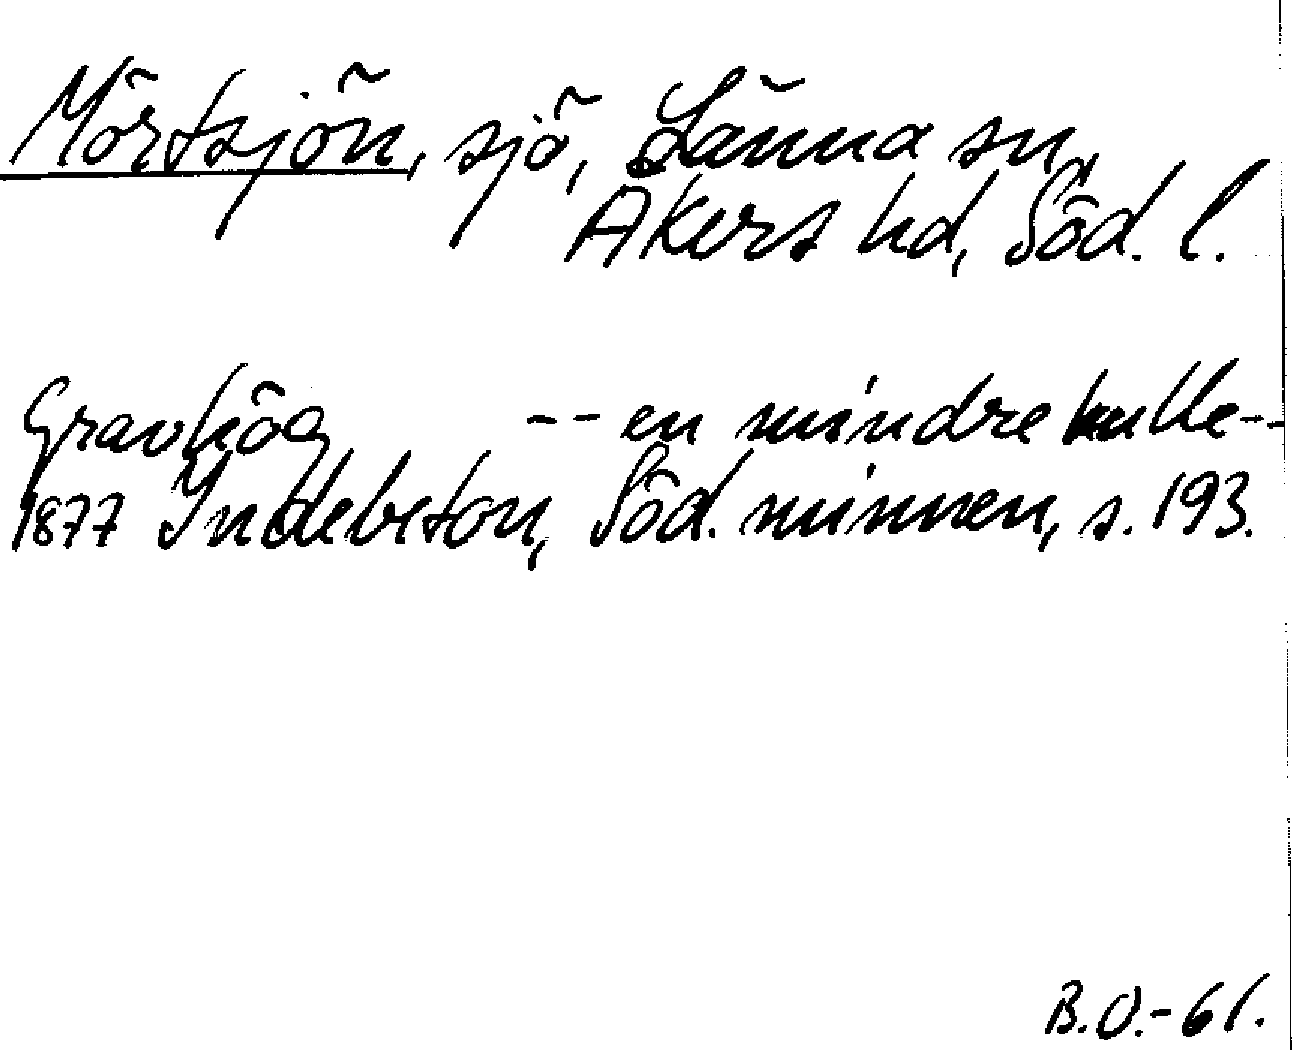 Mörtsjön, sjö, Länna sn,
Åkers hd, Söd. l.
Gravhög -- en mindre kulle --
1877 Indebeton, Söd. minnen, s. 193.
B.O.-61.